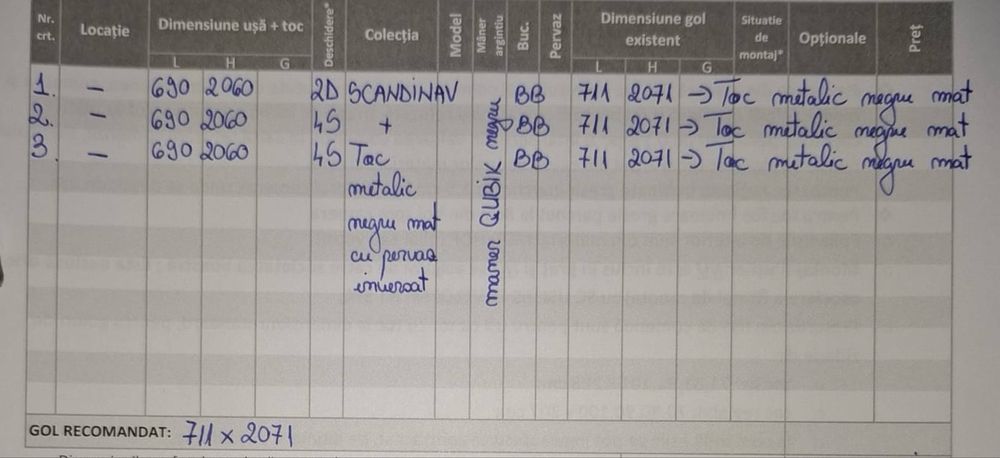 Nr. crt. Locație Dimensiune ușă + toc Deschidere* Colecția Model Mâner argintiu Buc. Pervaz Dimensiune gol existent Situatie de montaj* Opționale Preț
L H G L H G
1. – 690 2060 2D SCANDINAV BB 711 2071 → Toc metalic negru mat
2. – 690 2060 4S + BB 711 2071 → Toc metalic negru mat
3. – 690 2060 4S Toc BB 711 2071 → Toc metalic negru mat
metalic
negru mat
cu pervaz
inversat
maner QUBIK negru
GOL RECOMANDAT: 711 x 2071